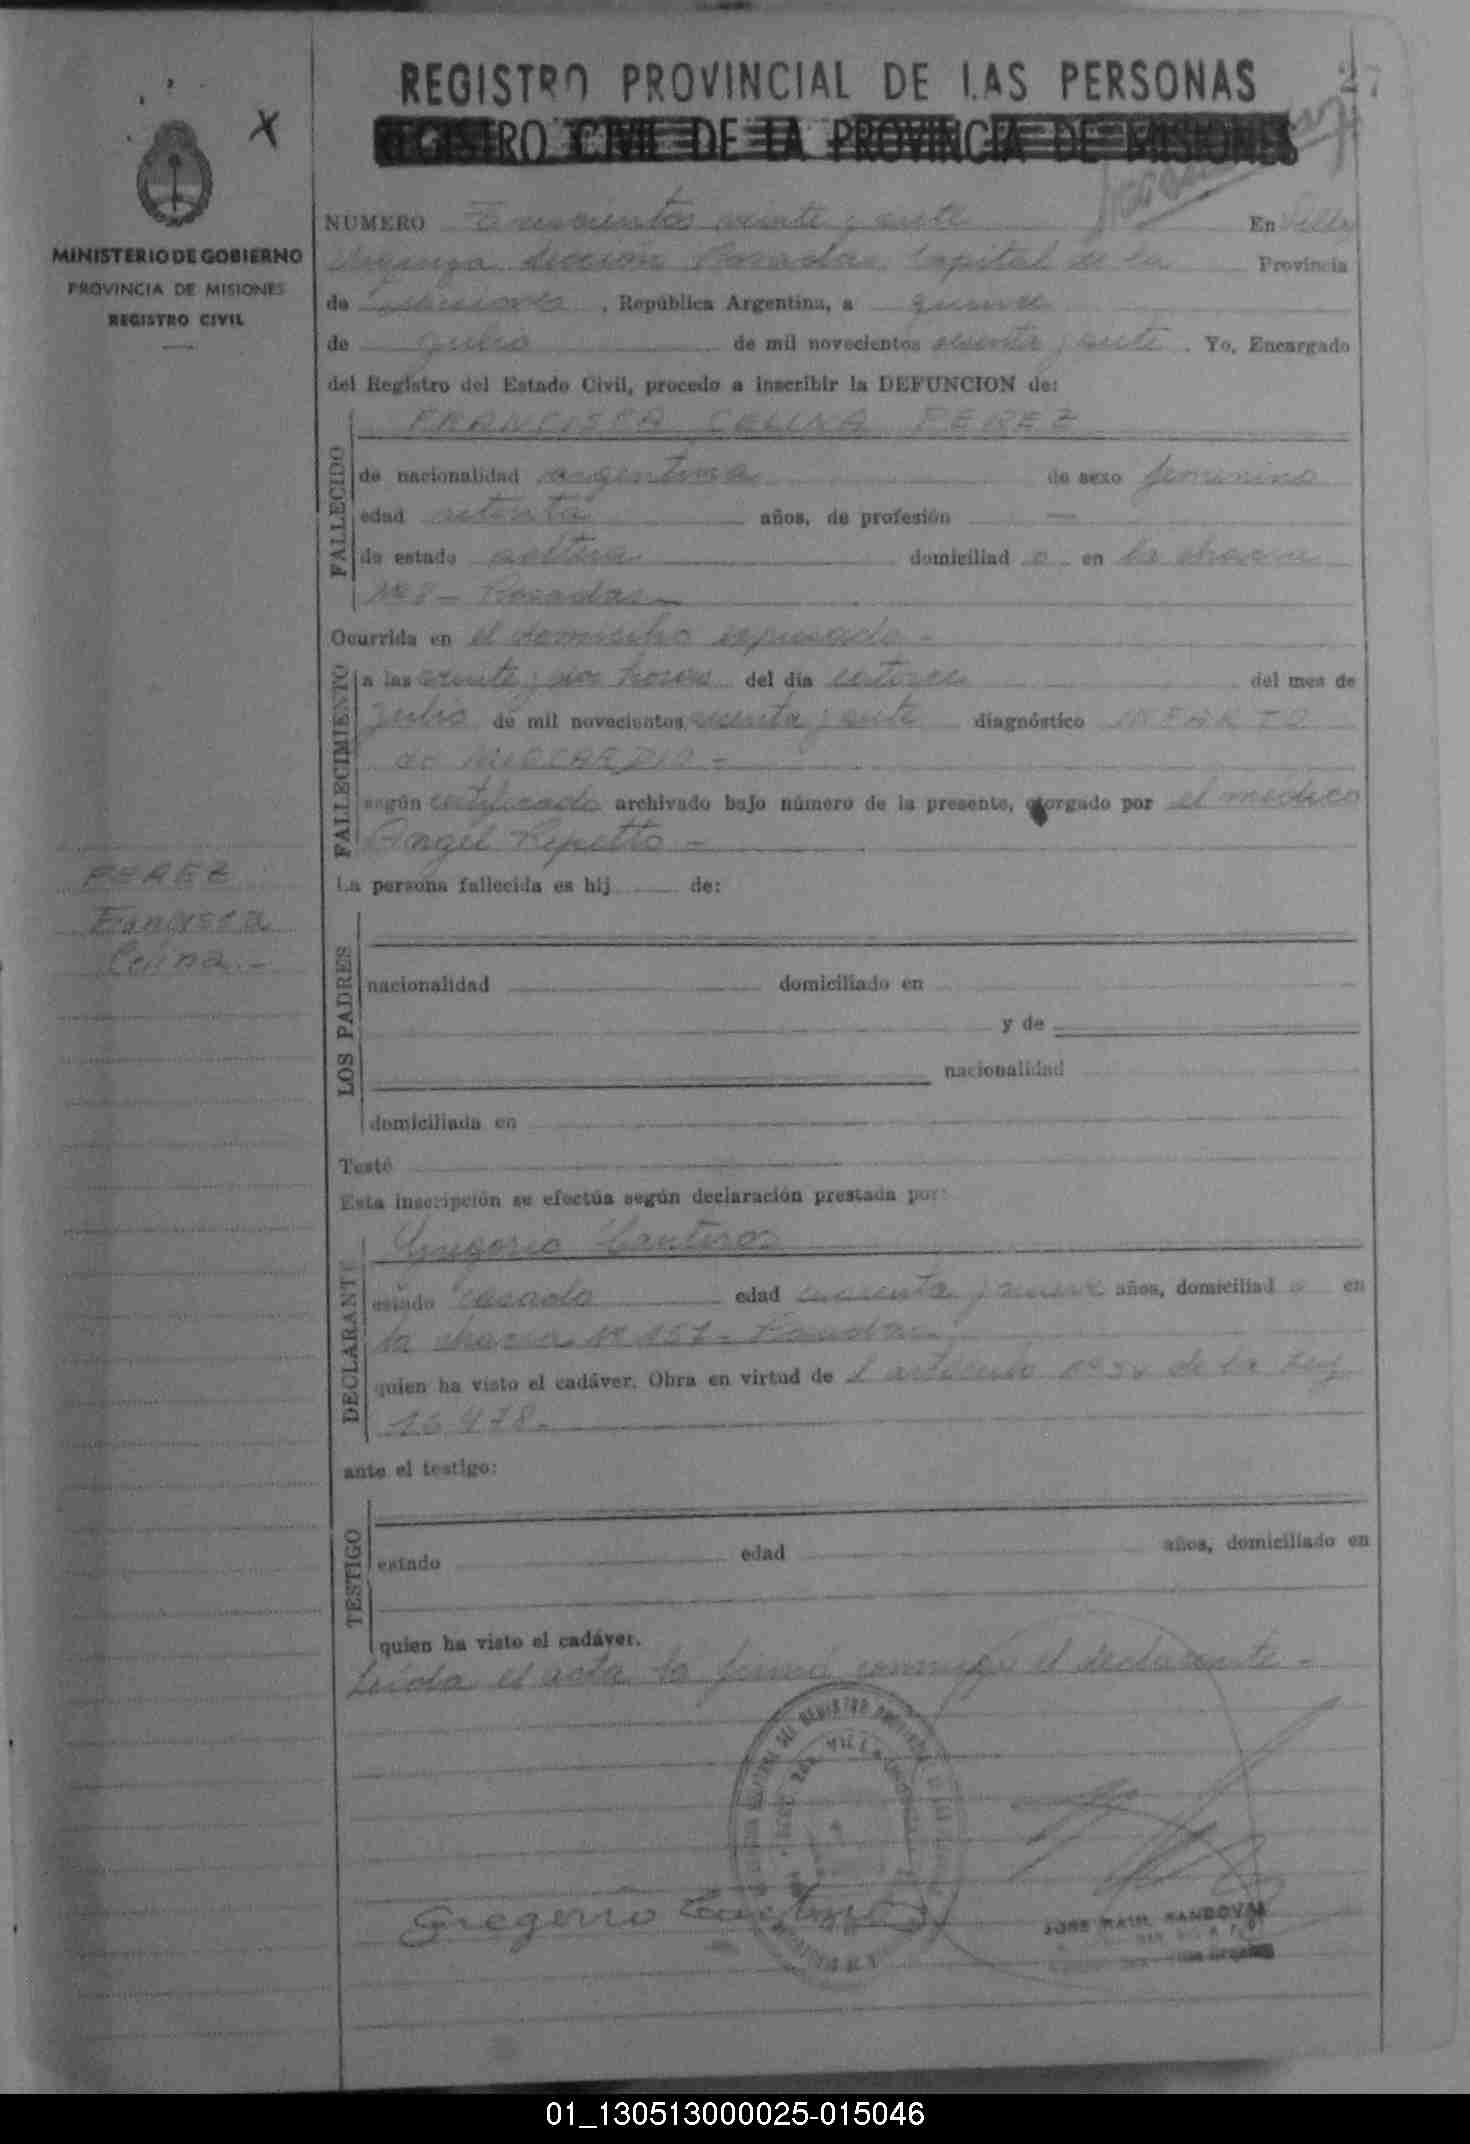 27
REGISTRO PROVINCIAL DE LAS PERSONAS
REGISTRO CIVIL DE LA PROVINCIA DE MISIONES
MINISTERIO DE GOBIERNO
PROVINCIA DE MISIONES
REGISTRO CIVIL
NUMERO Trescientos veinte y siete En Villa
Urquiza sección Posadas Capital de la Provincia
de Misiones, República Argentina, a quince
de Julio de mil novecientos setenta y siete. Yo, Encargado
del Registro del Estado Civil, procedo a inscribir la DEFUNCION de:
FRANCISCA CELINA PEREZ
FALLECIDO
de nacionalidad argentina de sexo femenino
edad setenta años, de profesión —
de estado soltera domiciliad a en la chacra
Nº 8 - Posadas -
Ocurrida en el domicilio expresado -
FALLECIMIENTO
a las veinte y dos horas del día catorce del mes de
Julio de mil novecientos setenta y siete diagnóstico INFARTO
de MIOCARDIO -
según certificado archivado bajo número de la presente, otorgado por el médico
Angel Repetto -
PEREZ
Francisca
Celina.-
La persona fallecida es hij de:
LOS PADRES
nacionalidad domiciliado en
y de
nacionalidad
domiciliada en
Testó
Esta inscripción se efectúa según declaración prestada por:
DECLARANTE
Gregorio Canteros
estado casado edad cuarenta y nueve años, domiciliad o en
la chacra Nº 157 - Posadas -
quien ha visto el cadáver. Obra en virtud de l artículo nº de la Ley
16478.-
ante el testigo:
TESTIGO
estado edad años, domiciliado en
quien ha visto el cadáver.
Leída el acta la firmó conmigo el declarante -
Gregorio
JOSE RAUL SANDOVAL
01_130513000025-015046